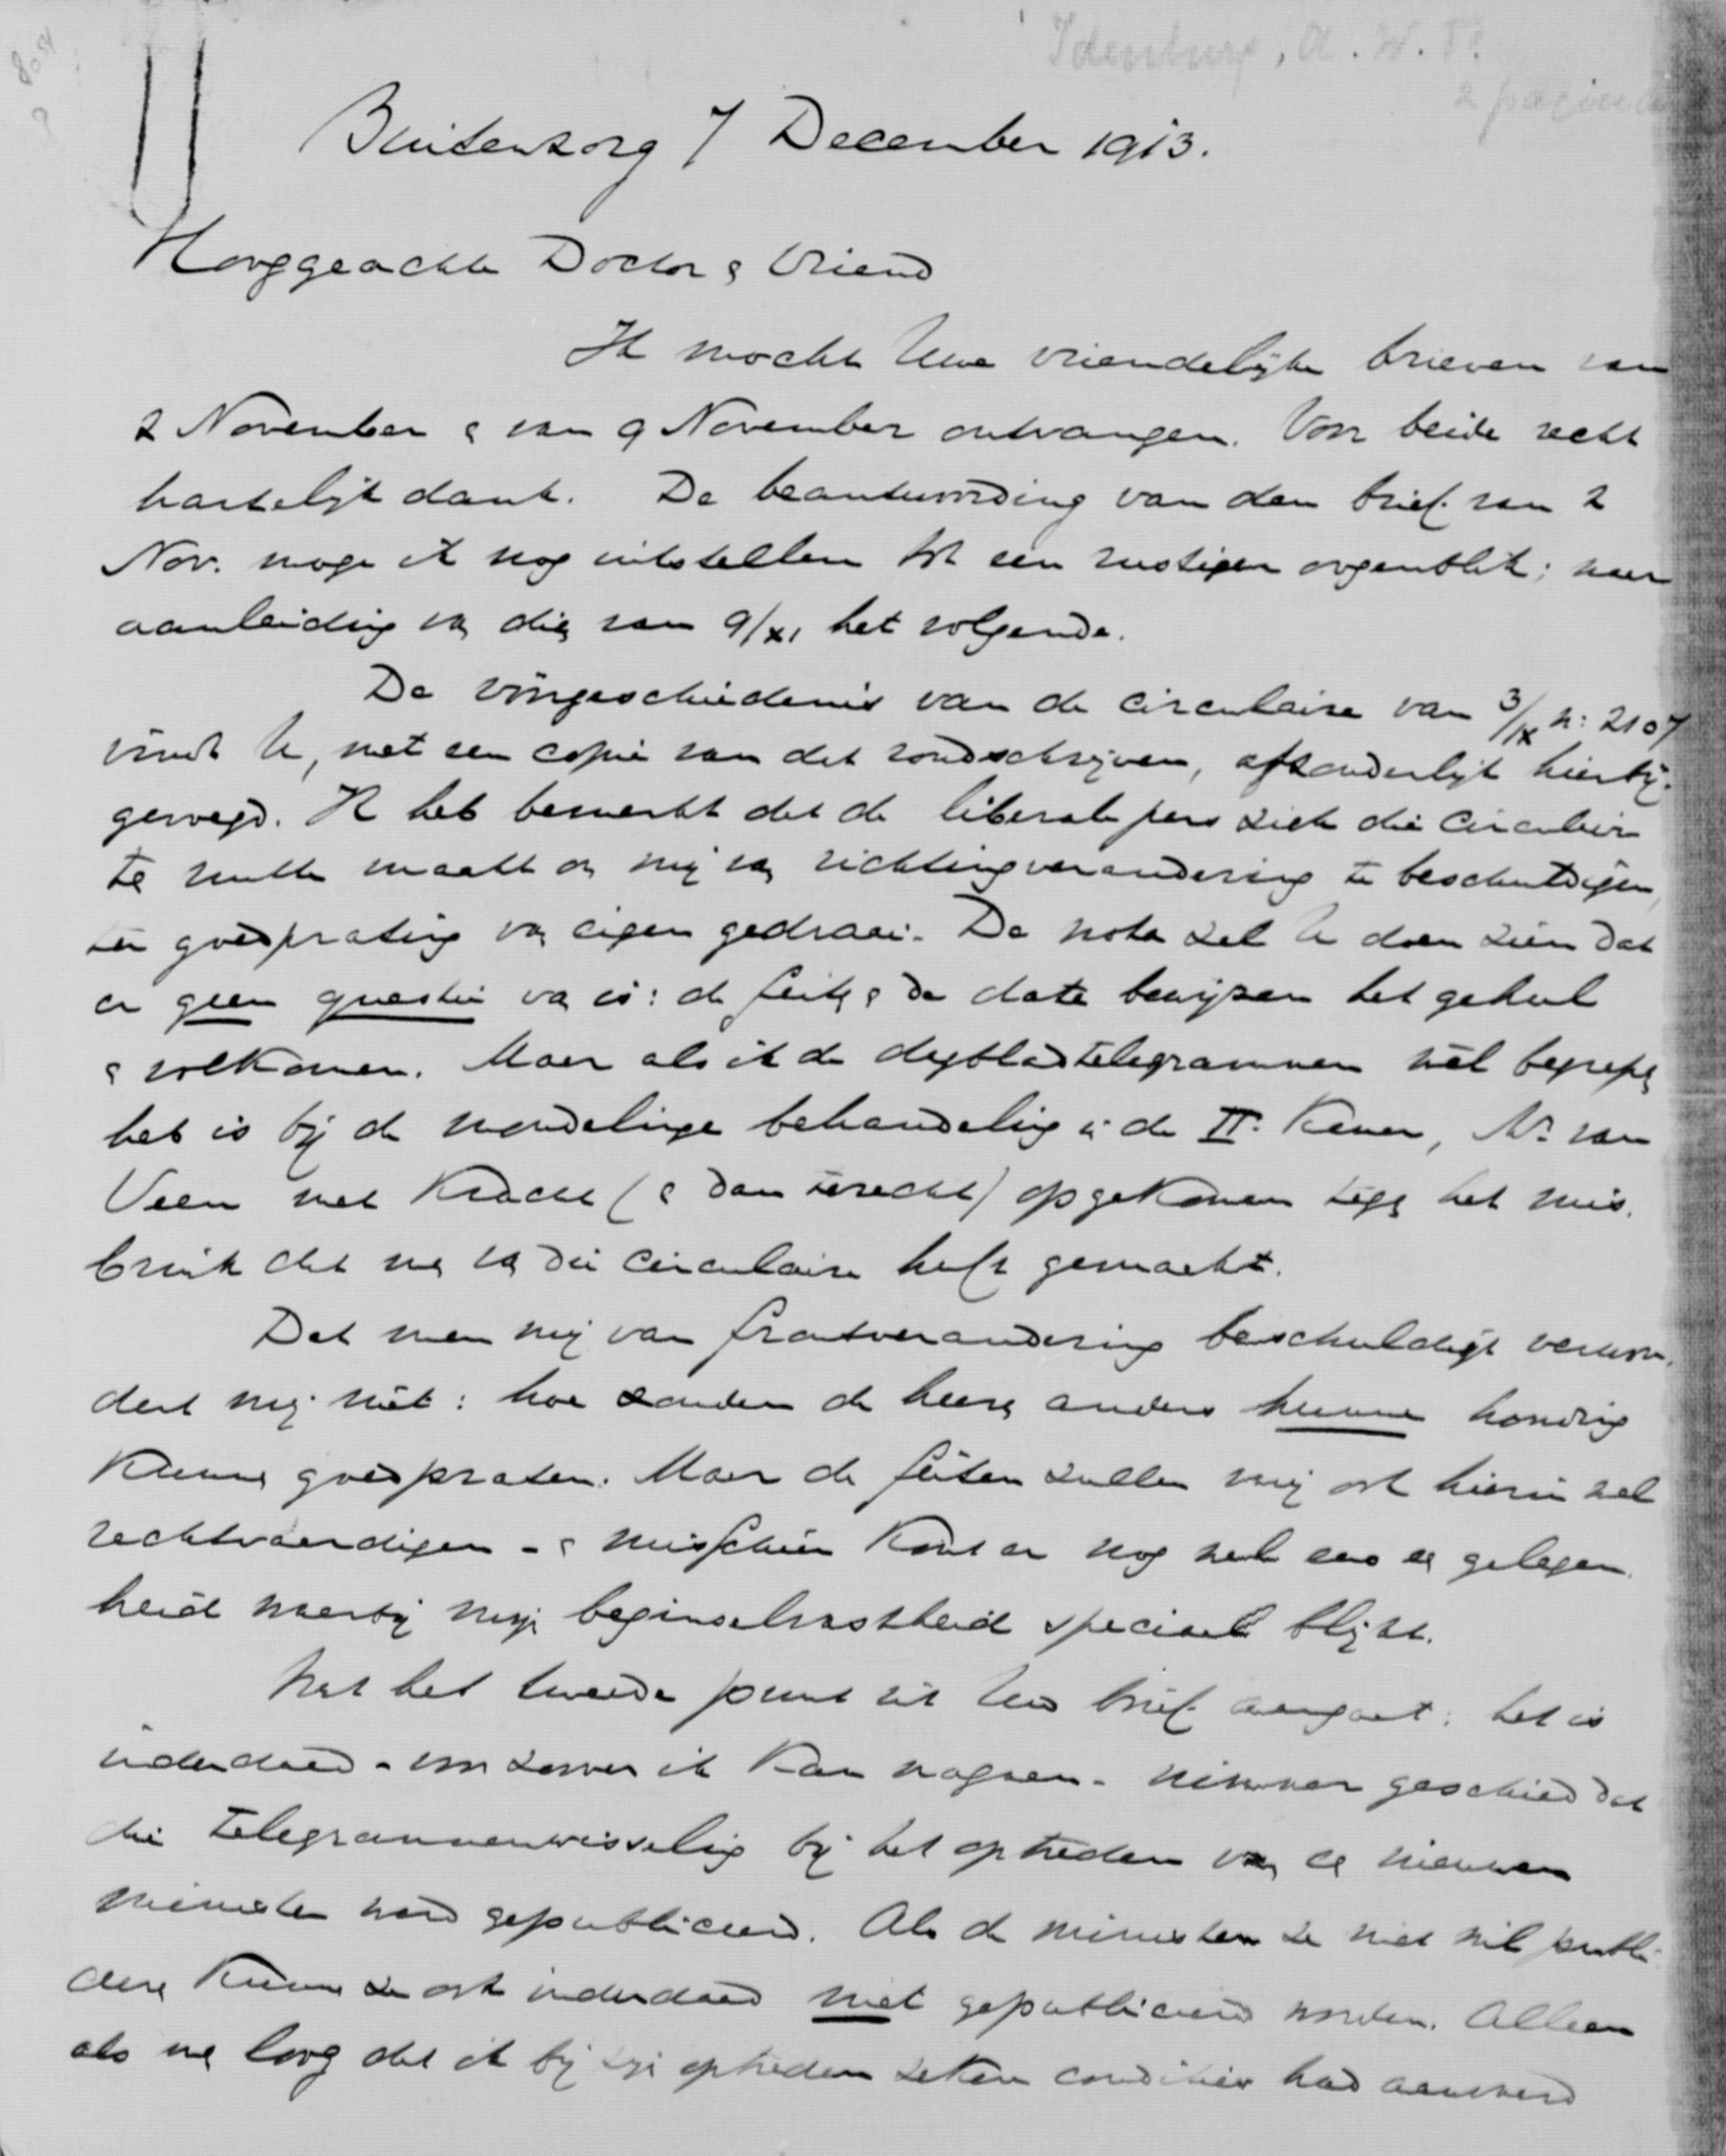 Idenburg, A. W. F.
2 pagina's
Buitenzorg 7 December 1913.
Hooggeachte Doctor & Vriend
Ik mocht Uwe vriendelijke brieven van
2 November & van 9 November ontvangen. Voor beide recht
hartelijk dank. De beantwoording van den brief van 2
Nov. moge ik nog uitstellen tot een rustiger oogenblik; naar
aanleiding van dien van 9/XI het volgende.
De voorgeschiedenis van de circulaire van 3/IX n: 2107
vindt U, met een copie van dat rondschrijven, afzonderlijk hierbij-
gevoegd. Ik heb bemerkt dat de liberale pers zich die circulaire
te nutte maakt om mij van richtingverandering te beschuldigen,
ter goedprating van eigen gedraai. De nota zal U doen zien dat
er geen questie van is: de feiten & de data bewijzen het geheel
& volkomen. Maar als ik de dagbladtelegrammen wel begrepen
heb is bij de mondelinge behandeling in de IIe Kamer, Mr van
Veen met kracht (& dan terecht) opgekomen tegen het mis-
bruik dat men van die circulaire heeft gemaakt.
Dat men mij van frontverandering beschuldigt verwon-
dert mij niet: hoe zouden de heeren anders hunne houding
kunnen goedpraten. Maar de feiten zullen mij ook hierin wel
rechtvaardigen - & misschien komt er nog wel eens een gelegen-
heid waarbij mijn beginselvastheid speciaal blijkt.
Wat het tweede punt uit Uw brief aangaat: het is
inderdaad - voor zoover ik kan nagaan - nimmer geschied dat
die telegrammenwisseling bij het optreden van een nieuwen
minister werd gepubliceerd. Als de minister ze niet wil publi-
ceren kunnen ze ook inderdaad niet gepubliceerd worden. Alleen
als men loog dat ik bij zijn optreden zekere condities had aanvaard